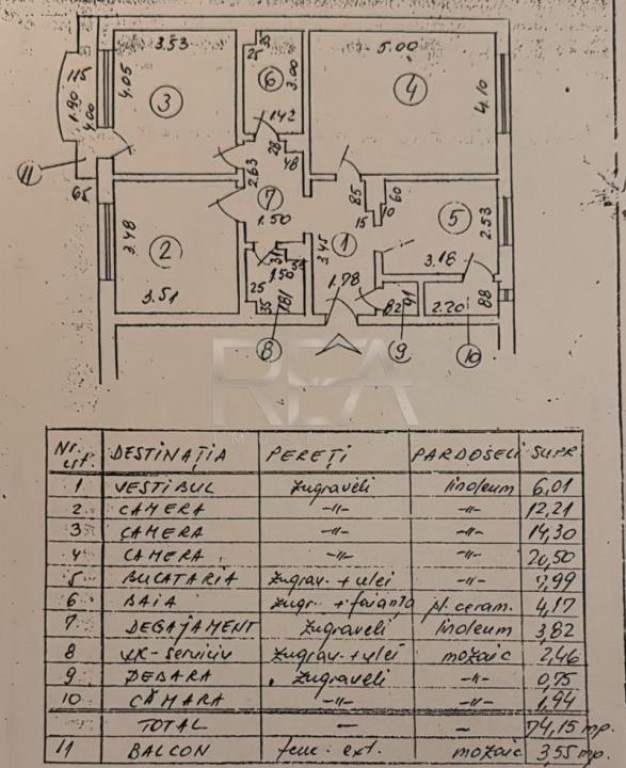 3.53
25
25
3.00
5.00
115
4.05
1.90
4.00
3
6
4
4.10
1.42
28
48
11
65
2.63
7
1.50
85
15
10
60
5
2.53
3.48
2
3.51
3.45
1
3.18
1.50
25
35
1.78
82
91
2.20
88
8
9
10
REA
Nr. crt. DESTINAȚIA PEREȚI PARDOSELI SUPR
1 VESTIBUL zugraveli linoleum 6,01
2 CAMERA -"- -"- 12,21
3 CAMERA -"- -"- 14,30
4 CAMERA -"- -"- 20,50
5 BUCATARIA zugrav. + ulei -"- 7,99
6 BAIA zugr. + faianta pl. ceram. 4,17
7 DEGAJAMENT zugraveli linoleum 3,82
8 WC-serviciu zugrav. + ulei mozaic 2,46
9 DEBARA zugraveli -"- 0,75
10 CĂMARA -"- -"- 1,94
TOTAL — — 74,15 mp.
11 BALCON tenc. ext. mozaic 3,55 mp.